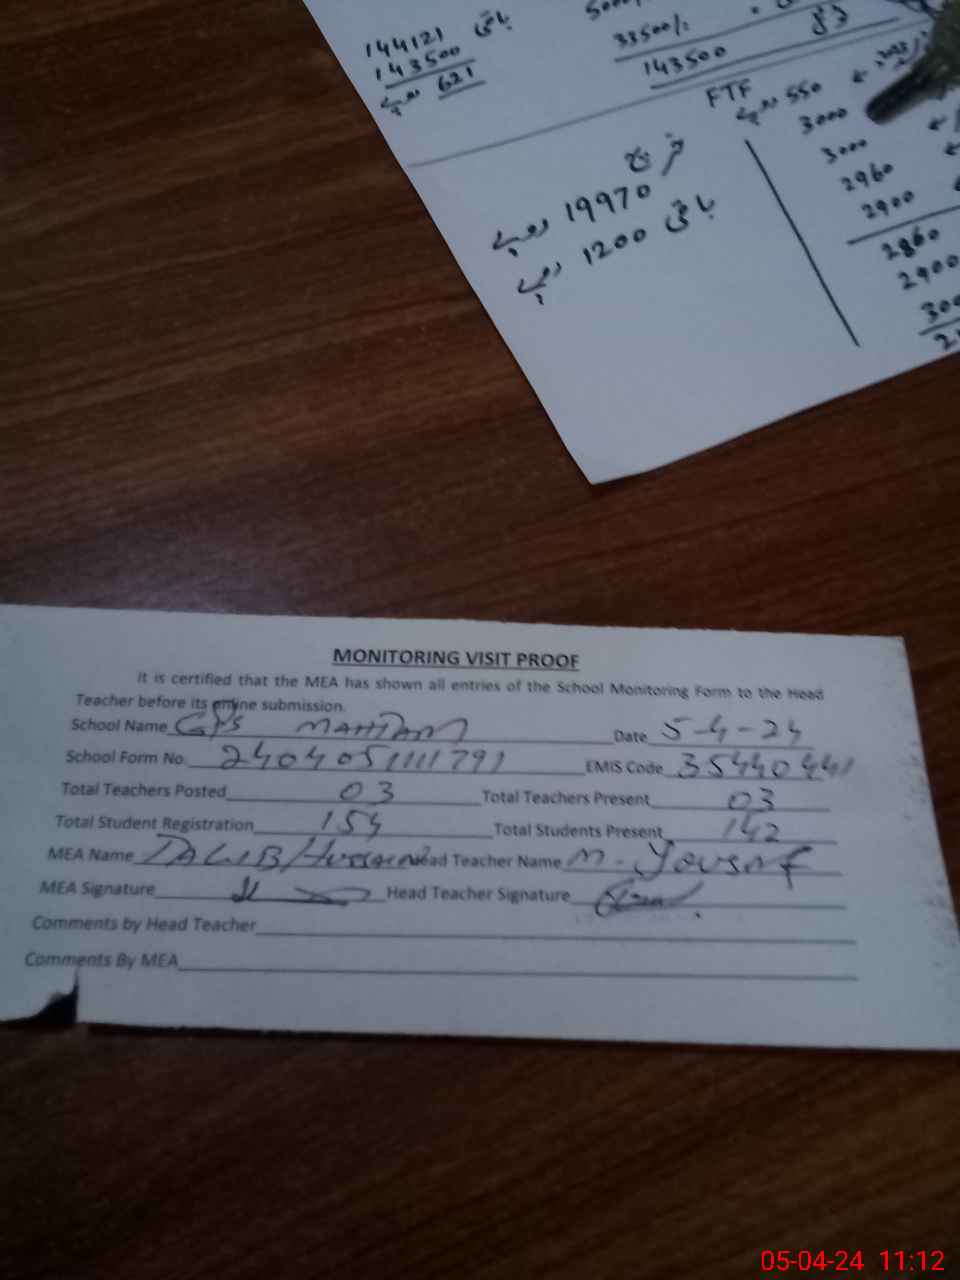 144121 باقی
143500
621 روپے
5000/
33500/.
143500
FTF
خرچ
19970 روپے
باقی 1200 روپے
550 روپے
3000
3000
2960
2900
2860
2900
300
MONITORING VISIT PROOF
It is certified that the MEA has shown all entries of the School Monitoring Form to the Head
Teacher before its online submission.
School Name GPS Date 5-4-24
School Form No. 2404051111791 EMIS Code 35440441
Total Teachers Posted 03 Total Teachers Present 03
Total Student Registration 154 Total Students Present 142
MEA Name Hussain Head Teacher Name M. Yousaf
MEA Signature Head Teacher Signature
Comments by Head Teacher
Comments By MEA
05-04-24 11:12